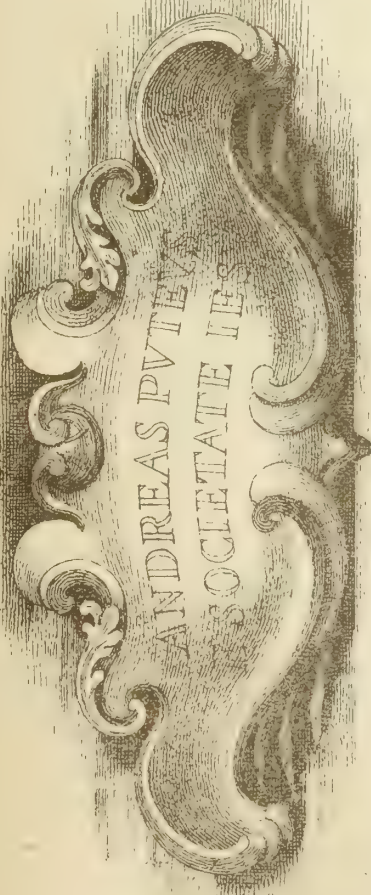 ANDREAS PVTEVS
E SOCIETATE IES